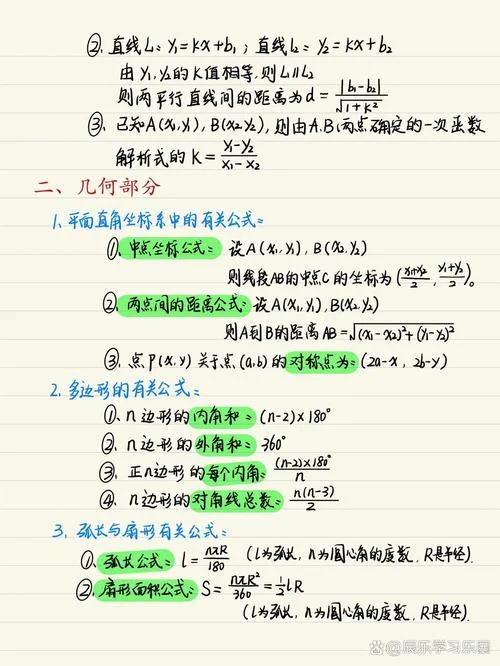 ②. 直线L₁: y₁=kx+b₁; 直线L₂: y₂=kx+b₂
由y₁,y₂的K值相等,则L₁∥L₂
则两平行直线间的距离为d=|b₁-b₂|/√(1+K²)
③. 已知A(x₁,y₁), B(x₂,y₂), 则由A.B两点确定的一次函数
解析式的K=(y₁-y₂)/(x₁-x₂)
二、几何部分
1.平面直角坐标系中的有关公式:
①.中点坐标公式: 设A(x₁,y₁), B(x₂,y₂)
则线段AB的中点C的坐标为((x₁+x₂)/2, (y₁+y₂)/2)。
②.两点间的距离公式: 设A(x₁,y₁), B(x₂,y₂)
则A到B的距离AB=√((x₁-x₂)²+(y₁-y₂)²)
③.点P(x,y)关于点(a,b)的对称点为: (2a-x, 2b-y)
2.多边形的有关公式:
①.n边形的内角和: (n-2)×180°
②.n边形的外角和: 360°
③.正n边形的每个内角: (n-2)×180°/n
④.n边形的对角线总数: n(n-3)/2
3.弧长与扇形有关公式:
①.弧长公式: l=nπR/180 (l为弧长, n为圆心角的度数, R是半径).
②.扇形面积公式: S=nπR²/360=½lR
(l为弧长, n为圆心角的度数, R是半径).
辰乐学习乐园